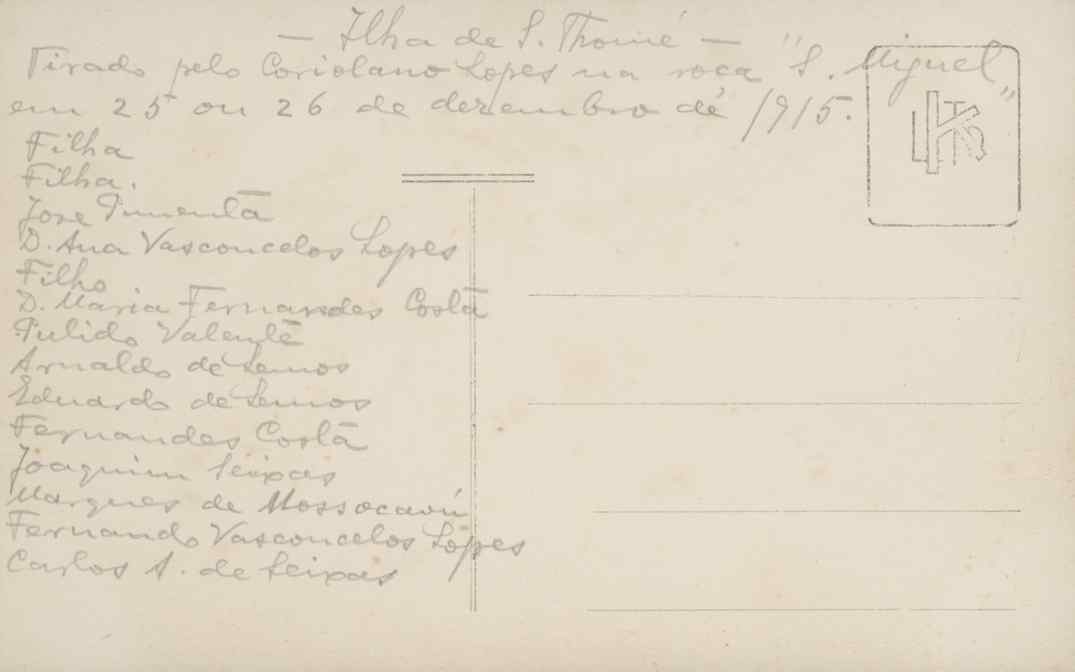 — Ilha de S. Thomé —
Tirado pelo Coriolano Lopes na roça "S. Miguel"
em 25 ou 26 de dezembro de 1915.
Filha
Filha.
Jose Pimenta
D. Ana Vasconcelos Lopes
Filho
D. Maria Fernandes Costa
Pulido Valente
Arnaldo de Lemos
Eduardo de Lemos
Fernandes Costa
Joaquim Seixas
Marques de Mossocavú
Fernando Vasconcelos Lopes
Carlos A. de Seixas